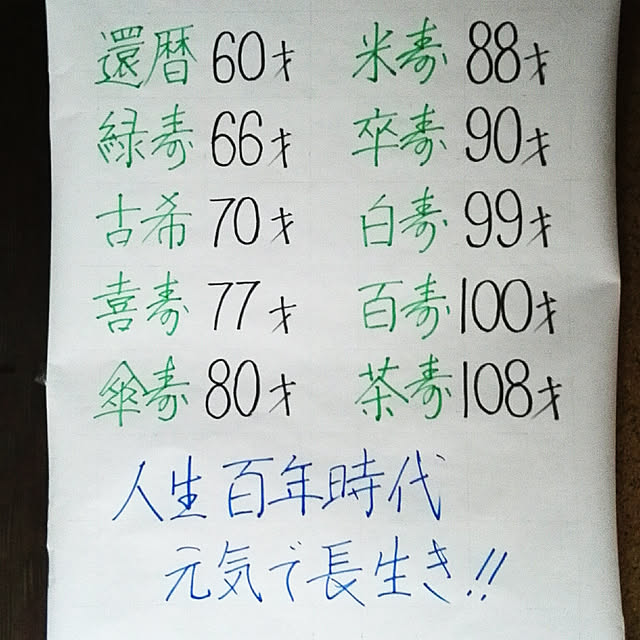 還暦 60才 米寿 88才
緑寿 66才 卒寿 90才
古希 70才 白寿 99才
喜寿 77才 百寿 100才
傘寿 80才 茶寿 108才
人生百年時代
元気で長生き!!